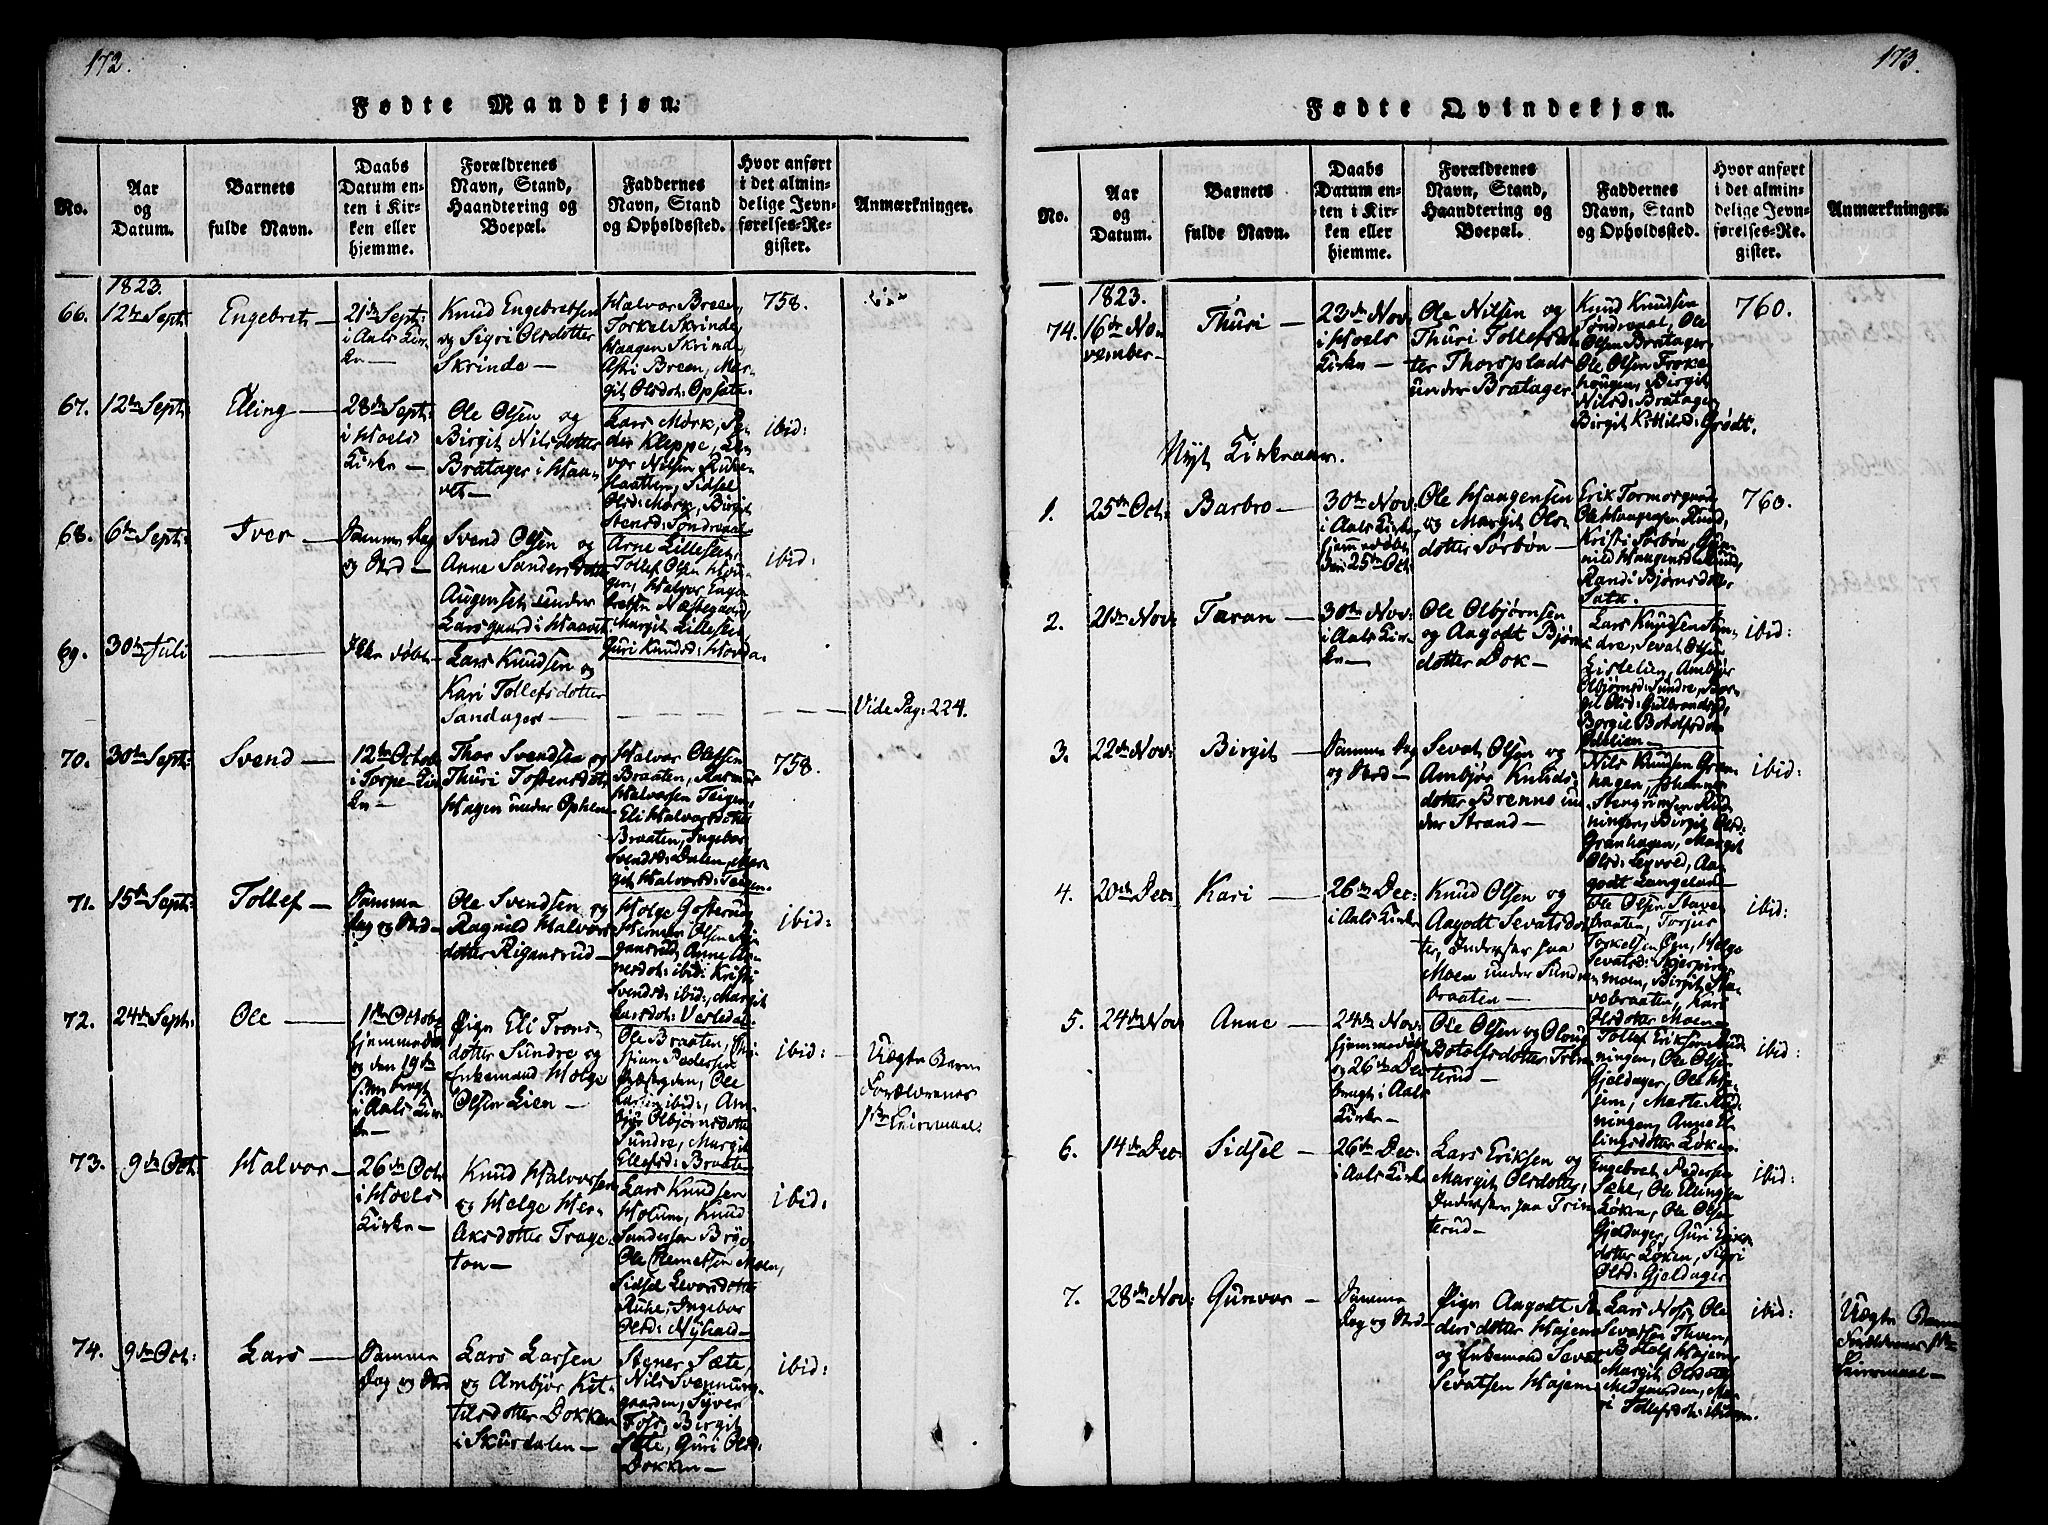 172.
Fødte Mandkjøn.
No.
Aar
og
Datum.
Barnets
fulde Navn.
Daabs
Datum en-
ten i Kir-
ken eller
hjemme.
Forældrenes
Navn, Stand,
Haandtering og
Boepæl.
Faddernes
Navn, Stand
og Opholdssted.
Hvor anført
i det almin-
delige Jevn-
førelses-Re-
gister.
Anmærkninger.
1823.
66.
12te Sept:
Engebret
21de Sept:
i Aals Kir-
ke
Knud Engebretsen
og Sigri Olsdotter
Skrinde
Halvor Breen,
Torkel Skrinde,
Haagen Skrinde,
Asti Breen, Mar-
git Olsdot: Opsata.
758.
67.
12te Sept:
Elling
28de Sept:
i Hoels
Kirke
Ole Olsen og
Birgit Nilsdotter
Bratager i Haa-
vet
Lars Mørk,
Kleppe,
Nilsen
Sidsel
Olsd: Mørk, Birgit
Stensd: Søndreaal
ibid:
68.
6te Sept:
Iver
Samme Dag
og Sted
Svend Olsen og
Anne Sanders Dotter
Augenset under
Larsgaard i Haavet
Arne Lilleset,
Tollef Olsen
Halvor Enge-
bretsen Næstegaard,
Margit Lilleset,
Guri Knudsd: Hovda.
ibid:
69.
30te Juli
Ikke døbt
Lars Knudsen og
Kari Tollefsdotter
Sandager
Vide Pag: 224.
70.
30te Sept:
Svend
12te Octob:
i Torpe-Kir-
ke
Thor Svendsen og
Thuri Tostensdot:
Hagen under Ophem
Halvor Olefsen
Braaten, Rasmus
Halvorsen Teigen
Eli Halvorsdotter
Braaten, Ingebor
Svendsd: Dalen, Mar-
git Halvorsd: Teigen
758.
71.
15de Sept:
Tollef
Samme
Dag og Sted
Ole Svendsen og
Ragnild Halvors-
dotter Rigansrud
Helge Gosterud
Olsen
Anne
ibid: Kristi
Svendsd: ibid:, Margit
Larsdot: Vesledal
ibid:
72.
24de Sept:
Ole
1ste Octob:
hjemmedøbt
og den 19de
bragt
i Aals Kir-
ke
Pigen Eli Trons-
dotter Sundre og
Enkemand Helge
Olsen Lien
Ole Braaten,
Pedersen
Ole
ibid:,
Olbjørnsdotter
Sundre, Margit
Ellefsd: Braaten
ibid:
Uægte Barn
Forældrenes
1ste Leiermaal.
73.
9de Oct:
Halvor
26de Oct:
i Hoels
Kirke
Knud Halvorsen
og Helge Her-
aksdotter Trage-
ton
Lars Knudsen
Holum, Knud
Sandersen Brye
Ole Clemetsen Moen,
Sidsel Levorsdotter
Ruhe, Ingebor
Olsd: Nyhald
ibid:
74.
9de Oct:
Lars
Samme
Dag og Sted
Lars Larsen
og Ambjør Kit-
tilsdotter Dokken
i Skurdalen
Stener Sæte,
Nils Svennung-
gaarden, Syver
Foss, Birgit
Sæte, Guri Olsd:
Dokken
ibid:
173.
Fødte Qvindekjøn.
No.
Aar
og
Datum.
Barnets
fulde Navn.
Daabs
Datum en-
ten i Kir-
ken eller
hjemme.
Forældrenes
Navn, Stand,
Haandtering og
Boepæl.
Faddernes
Navn, Stand
og Opholdssted.
Hvor anført
i det almin-
delige Jevn-
førelses-Re-
gister.
Anmærkninger.
1823.
74.
16de No-
vember
Thuri
23de Nov:
i Hoels
Kirke
Ole Nilsen og
Thuri Tollefsdot-
ter Thorsplads
under Bratager
Knud Knudsen
Søndreaal, Ole
Olsen Bratager,
Ole Olsen Froke-
haugen, Birgit
Nilsd: Bratager,
Birgit Kittilsd: Grødt.
760.
Nyt Kirkeaar.
1.
25de Oct:
Barbro
30te Nov:
i Aals Kirke,
hjemmedøbt
den 25de Oct:
Ole Haagensen
og Margit Ols-
dotter Sørbøn
Erik Tormorsgaard,
Ole Haagensen Rud,
Kristi Sørbøn, Gun-
nild Haagensd: Rud,
Randi Bjørnsdotter
Sata.
760.
2.
21de Nov:
Taran
30te Nov:
i Aals Kir-
ke
Ole Olbjørnsen
og Aagodt Bjørns-
dotter Dok
Lars Knudsen Sun-
dre, Sevat Olsen
Lislelien, Ambjør
Olbjørnsd: Sundre, Bor-
gil Olsd: Gulbrandsg:
Borgil Botolfsdot:
Lislelien
ibid:
3.
22de Nov:
Birgit
Samme Dag
og Sted
Sevat Olsen og
Ambjør Knuds-
dotter Brenno un-
der Strand
Nils Knudsen Gran-
hagen, Johannes
Stengrimsen Rud-
ningen, Birgit Olsd:
Granhagen, Margit
Olsd: Leqvold, Aa-
godt Langeland
ibid:
4.
20de Dec:
Kari
26de Dec:
i Aals Kirke
Knud Olsen og
Aagodt Sevatsdot-
ter, Inderster paa
Moen under Sundre-
braaten
Ole Olsen Stave-
braaten, Torjus
Torkelsen Øen, Helge
Sevatsd: Skjerpin-
moen, Birgit Sta-
vebraaten, Kari
Olsdotter Moen
ibid:
5.
24de Nov:
Anne
24de Nov:
hjemmedøbt
og 26de Dec:
bragt i Aals
Kirke
Ole Olsen og Oloug
Botolfsdotter Trin-
terud
Tollef Eriksen Rud-
ningen, Ole Olsen
Gjeldager, Ole
Marte Rud-
ningen, Anne El-
lingsdotter Løken
ibid:
6.
14de Dec:
Sidsel
26de Dec:
i Aals Kirke
Lars Eriksen og
Margit Olsdotter,
Inderster paa Trin-
terud
Engebret Pedersen
Sæhe, Ole Ellingsen
Løken, Ole Olsen
Gjeldager, Guri Eriks-
dotter Løken, Sigri
Olsd: Gjeldager
ibid:
7.
28de Nov:
Gunvor
Samme
Dag og Sted
Pigen Aagodt A-
dersdotter Hajem
og Enkemand Sevat
Sevatsen Hajem
Lars Noss, Ole
Sevatsen Thoen,
Botolf Hajem,
Margit Olsdotter
Medgaarden, Ma-
ri Tollefsdot: ibidem.
ibid:
Uægte Barn
Forældrenes 1ste
Leiermaal